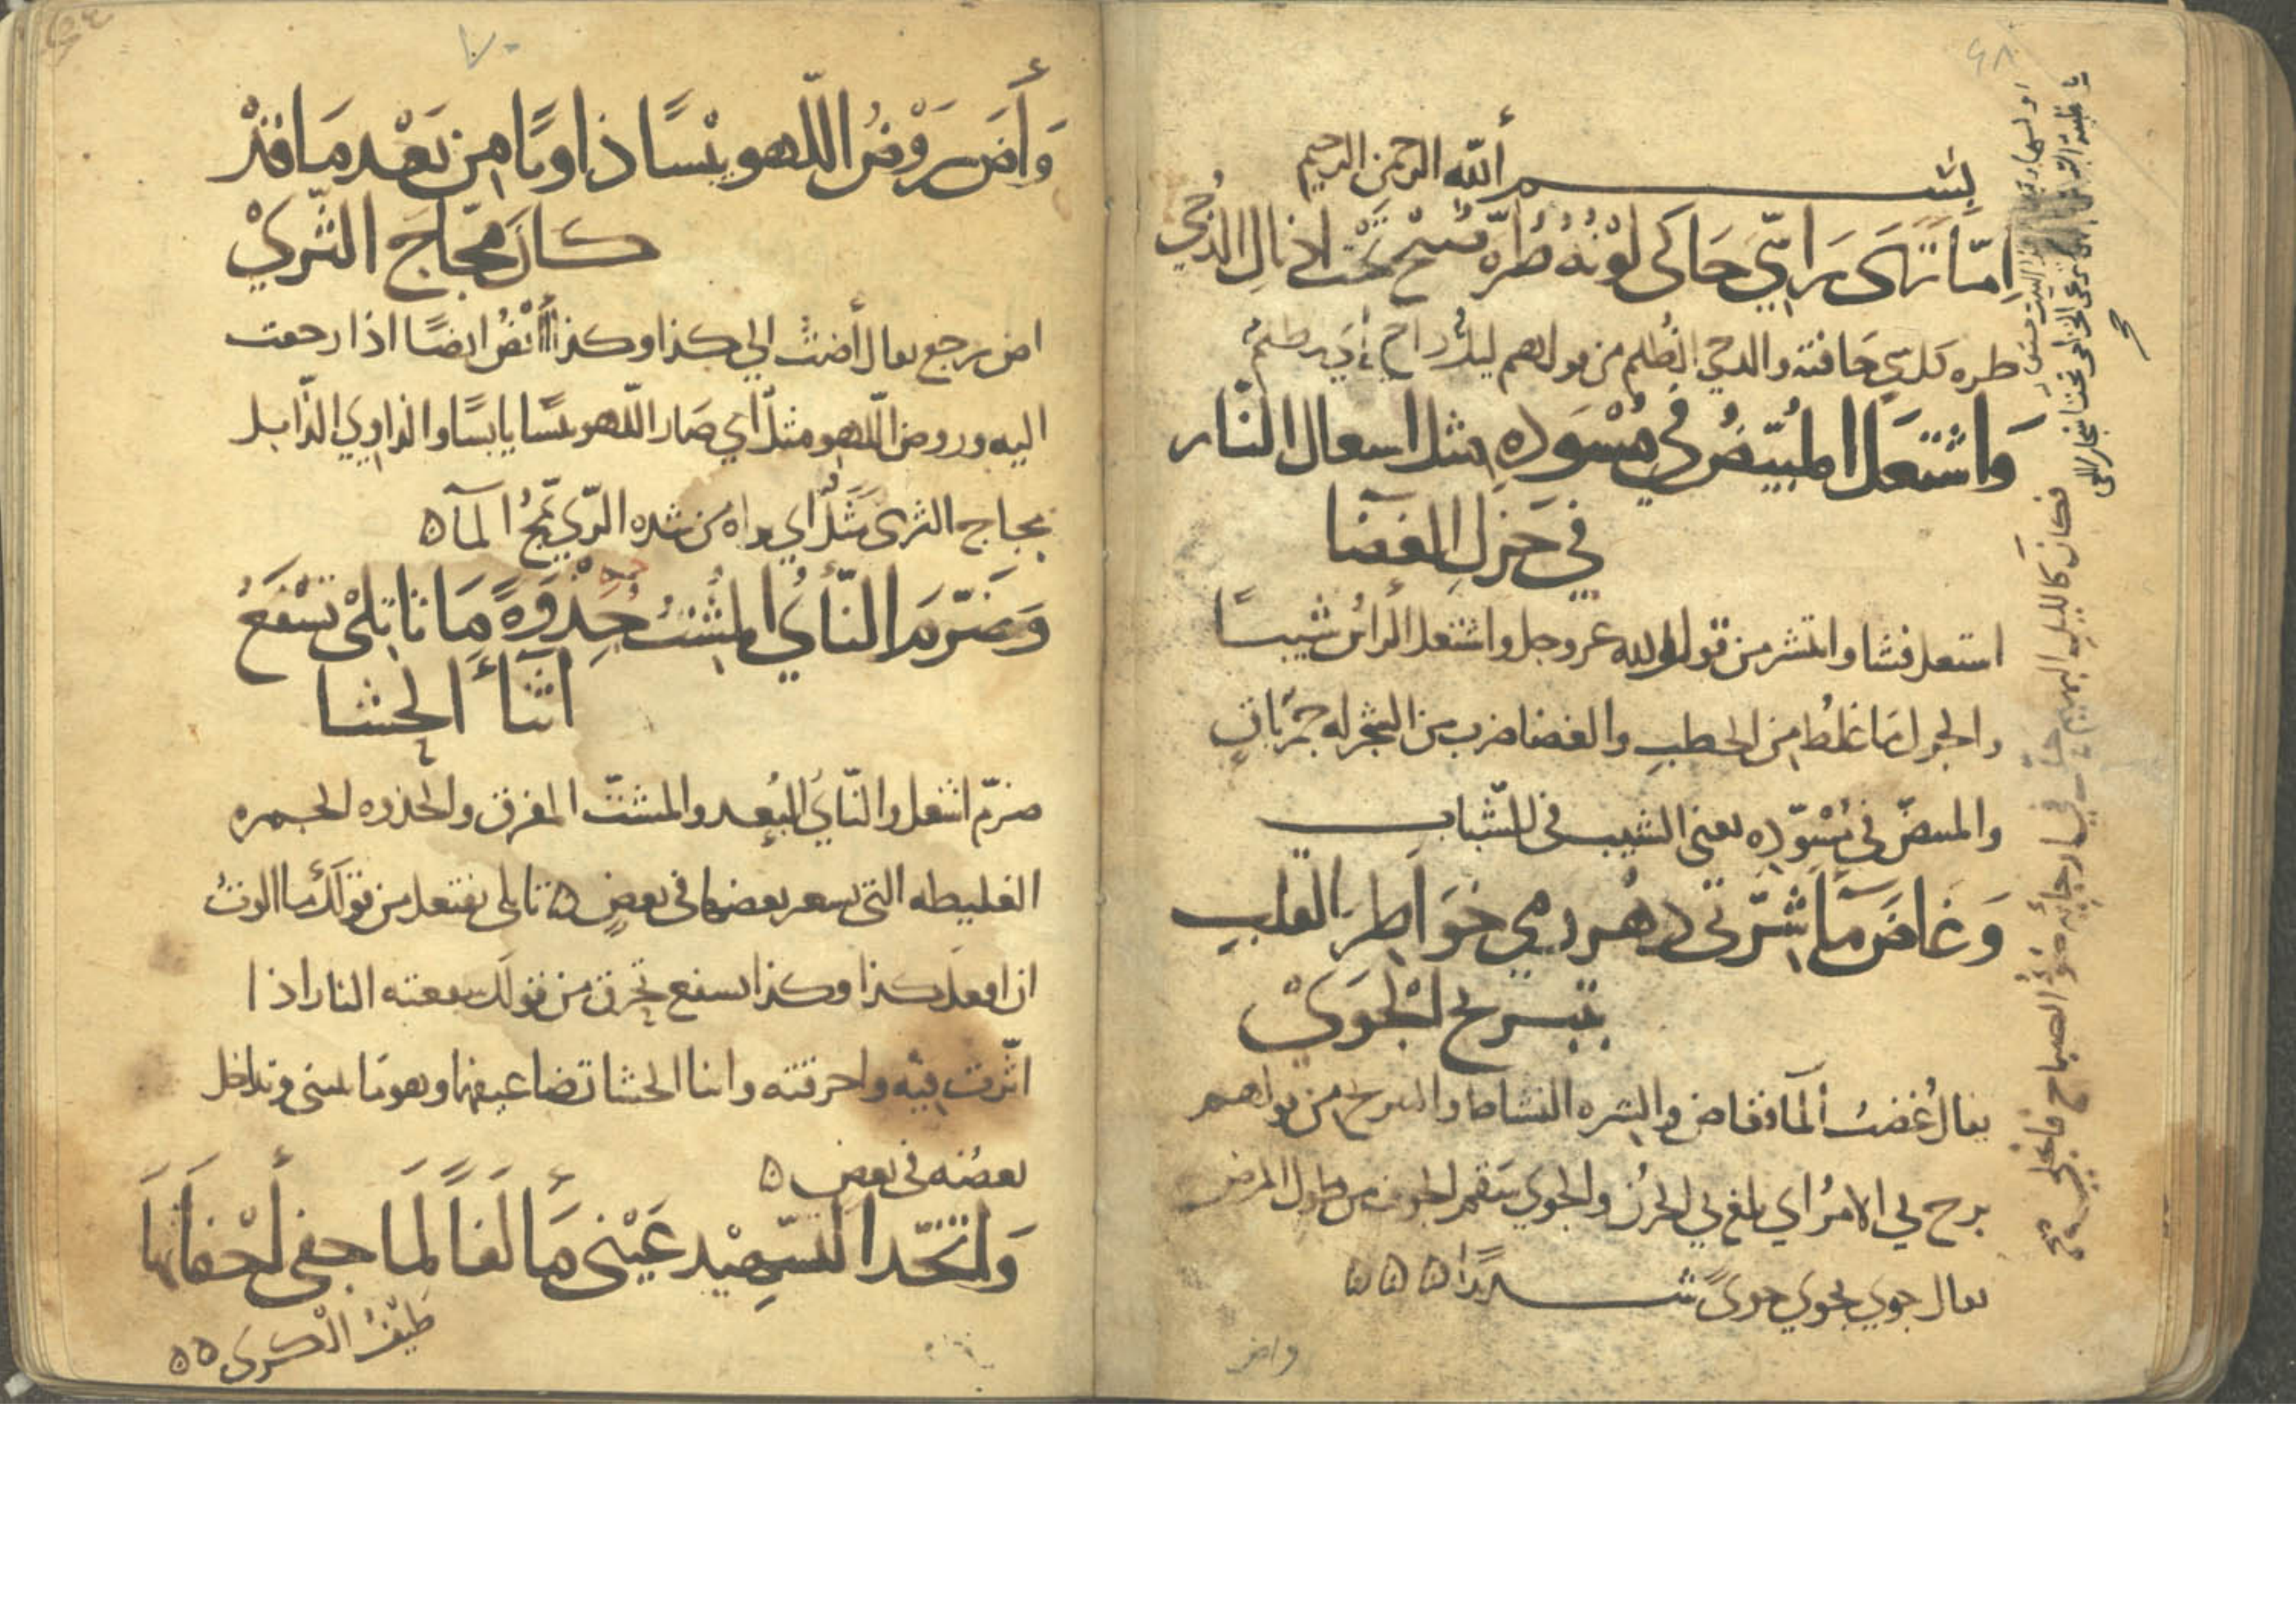 ٦٨
بسم أللّه الرحمن الرحيم
اِمّا تَرَى رَاسِي حَاكَى لَوْنُهُ طُرَّة صُبْحٍ تَحْتَ اذيال الدُجي
طره كل شي حافته والدجي الظُلم من قولهم ليلٌ داجٍ أي مظلم
وَاشْتَعَلَ المُبيَّضُ في مُسْوَدِّهِ مثل اشتعال النّار
في جَزلِ الغضَا
اشتعل فشا وانتشر من قول الله عز وجل واشتعل الرأس شيبًا
والجزل مَا غلُظ من الحطب والغضا ضرب من الشجر له جمر باقٍ
والمبيضّ في مُسْوَدّه يعني الشيب في الشّباب
وَغاضَ مَآءَ شِرَّتي دهرٌ رمي خوَاطِرَ القلبِ
بتبريح الْجَوَيْ
يقال غُضتُ المآ فغاض والشره النشاط والتبريح من قولهم
برح بي الامرُ اي بلغ بي الحزن والجوي سقم الجوف من طول المرض
يقال جوي يجوي جوىً شديدًا ۵ ۵ ۵
واض
فكان كالليل البهيم حلّ في ارجائه ضوْءُ الصباح فانجلي
٧٠
وَأَضَ رَوْضُ اللّهو يبْسًا ذاويًا مِن بَعْد مَا قدْ
كانَ مجّاجَ الثّريْ
اض رجع يقال أضتُ الي كذا وكذا أئضُ ايضًا اذا رجعت
اليه وروض اللّهو مثلٌ اي صَار اللّهو يبسًا يابسًا والذاوي الذّابل
مجاج الثرى مَثَلٌ اي يراه من شده الرّي يمُجُّ المآ ۵
وَضَرَّمَ النّأيُ المشتُّ جُذوَةً مَا تاتَلي تَسْفَعُ
اثنآءَ الحشا
ضرّم اشعل والنّأي البُعد والمشتّ المفرق والجذوه الجمره
الغليظه التي تسعر بعضها في بعض ۵ تاتلي تفتعل من قولك ما الوتُ
ان افعل كذا وكذا تسفع تحرق من قولك سفعته النار اذا
اثّرت فيه واحرقته واثنا الحشا تضاعيفها وهو ما انثني وتداخل
بعضه في بعض ۵
وَاتّخَذَ التّسهيْدُ عَيْني مَألفاً لمَا جفي أجْفانَهَا
طَيْفُ الْكرَى ۵۵